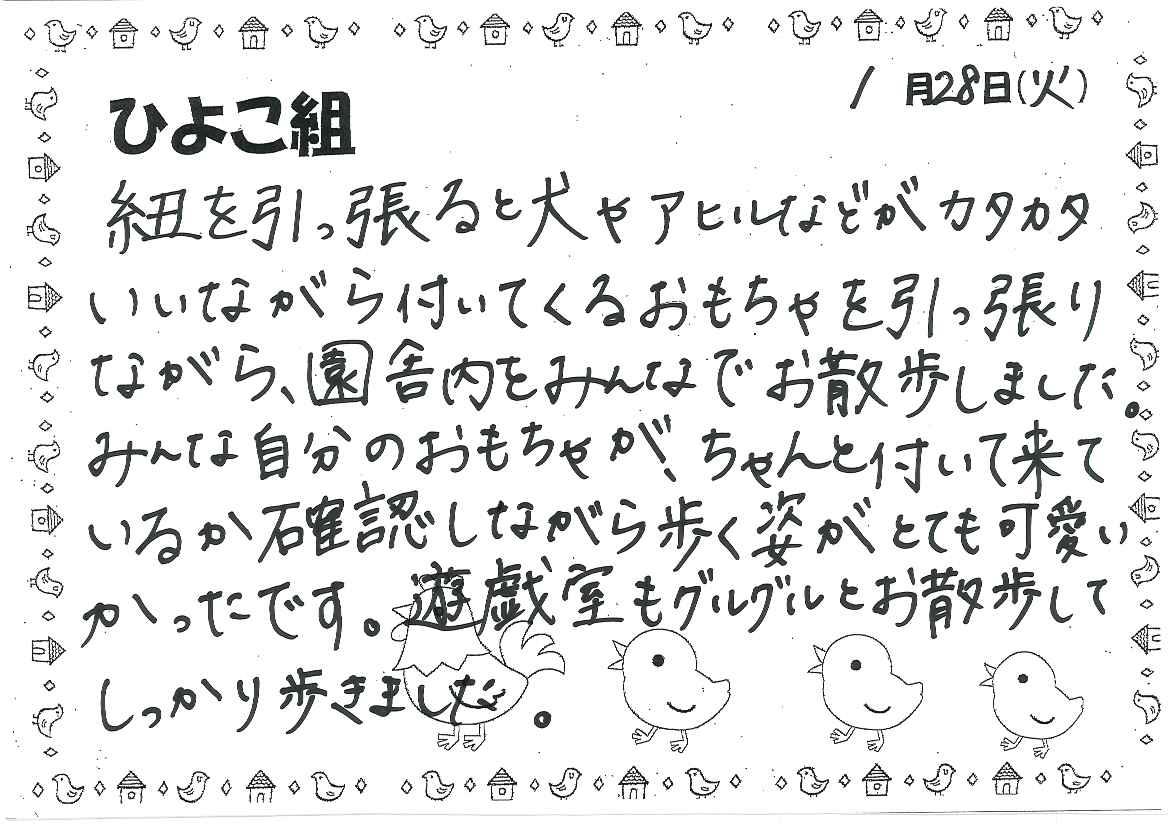 1月28日(火)
ひよこ組
紐を引っ張ると犬やアヒルなどがカタカタ
いいながら付いてくるおもちゃを引っ張り
ながら、園舎内をみんなでお散歩しました。
みんな自分のおもちゃが、ちゃんと付いて来て
いるか確認しながら歩く姿がとても可愛い
かったです。遊戯室もグルグルとお散歩して
しっかり歩きました。